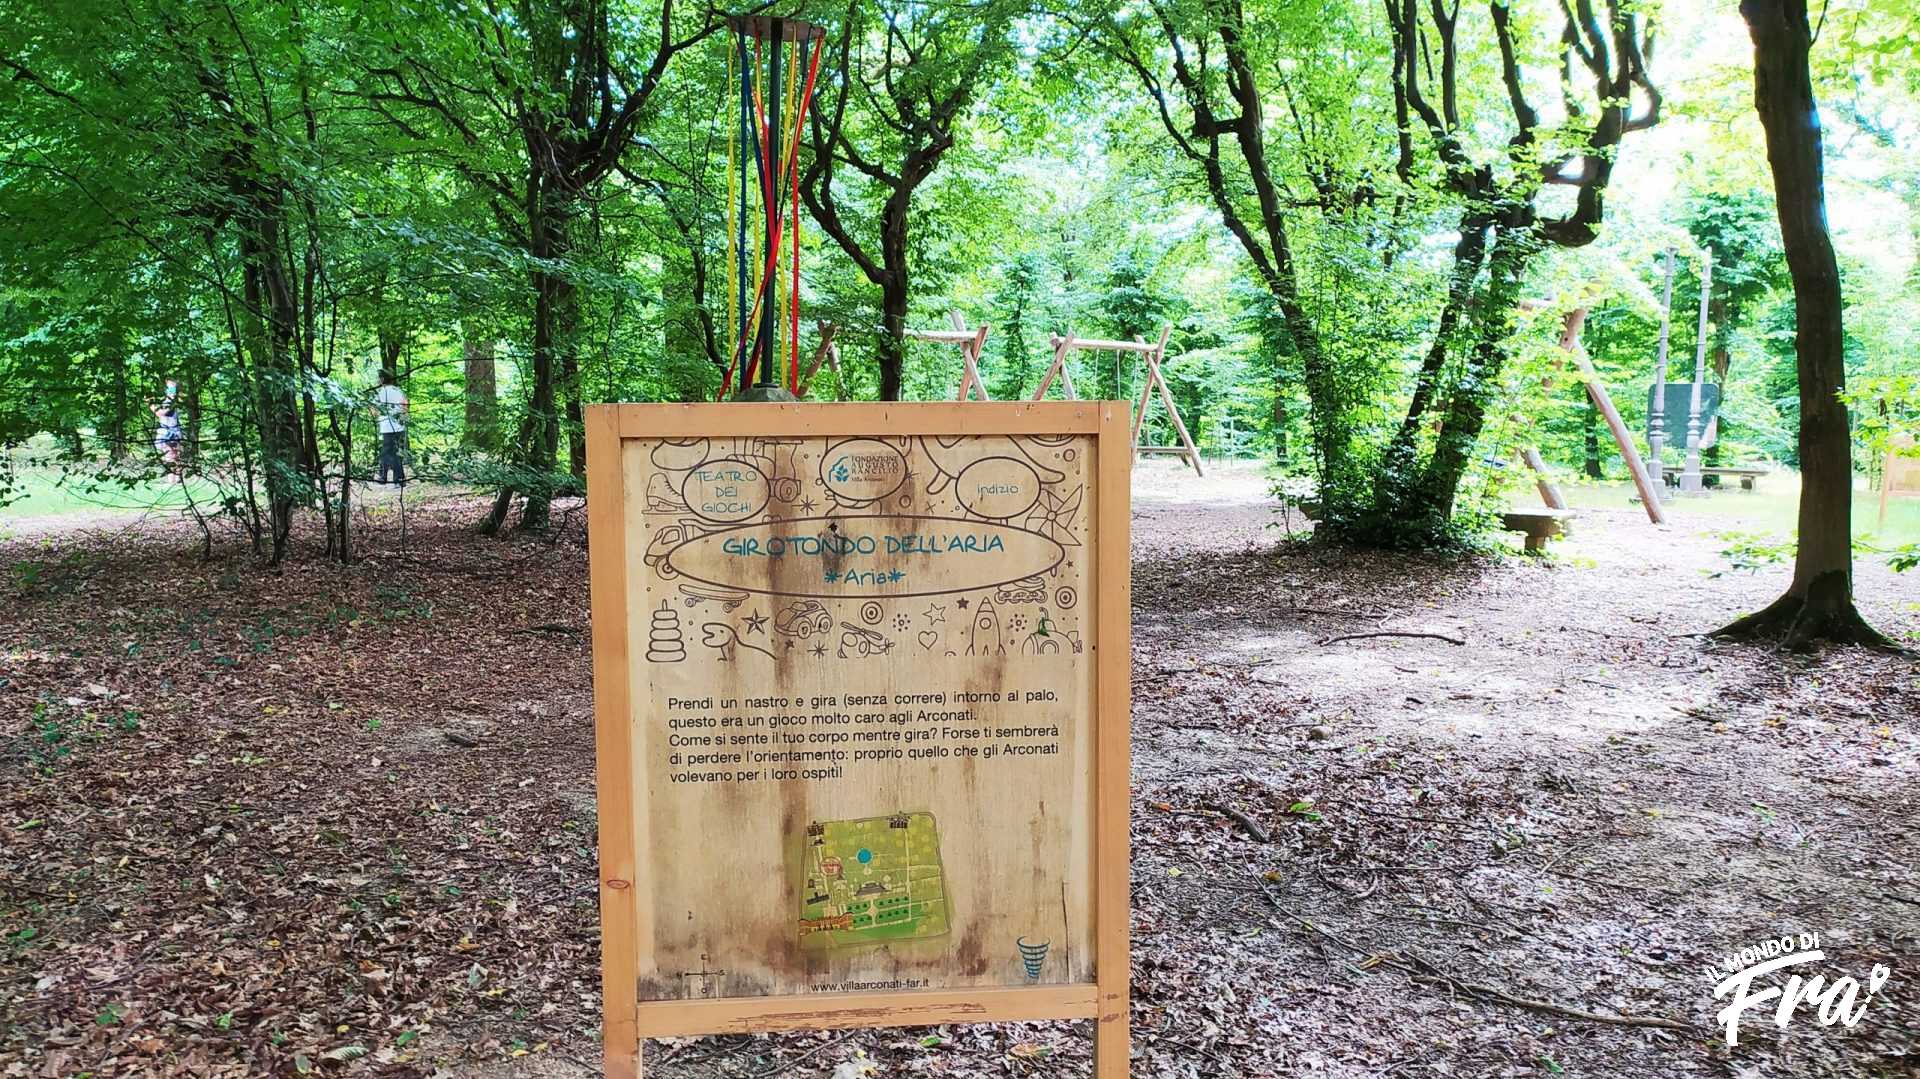 TEATRO
DEI
GIOCHI
FONDAZIONE
AUGUSTO
RANCILIO
Villa Arconati
indizio
GIROTONDO DELL'ARIA
*Aria*
Prendi un nastro e gira (senza correre) intorno al palo,
questo era un gioco molto caro agli Arconati.
Come si sente il tuo corpo mentre gira? Forse ti sembrerà
di perdere l'orientamento: proprio quello che gli Arconati
volevano per i loro ospiti!
www.villaarconati-far.it
IL MONDO DI
Fra!